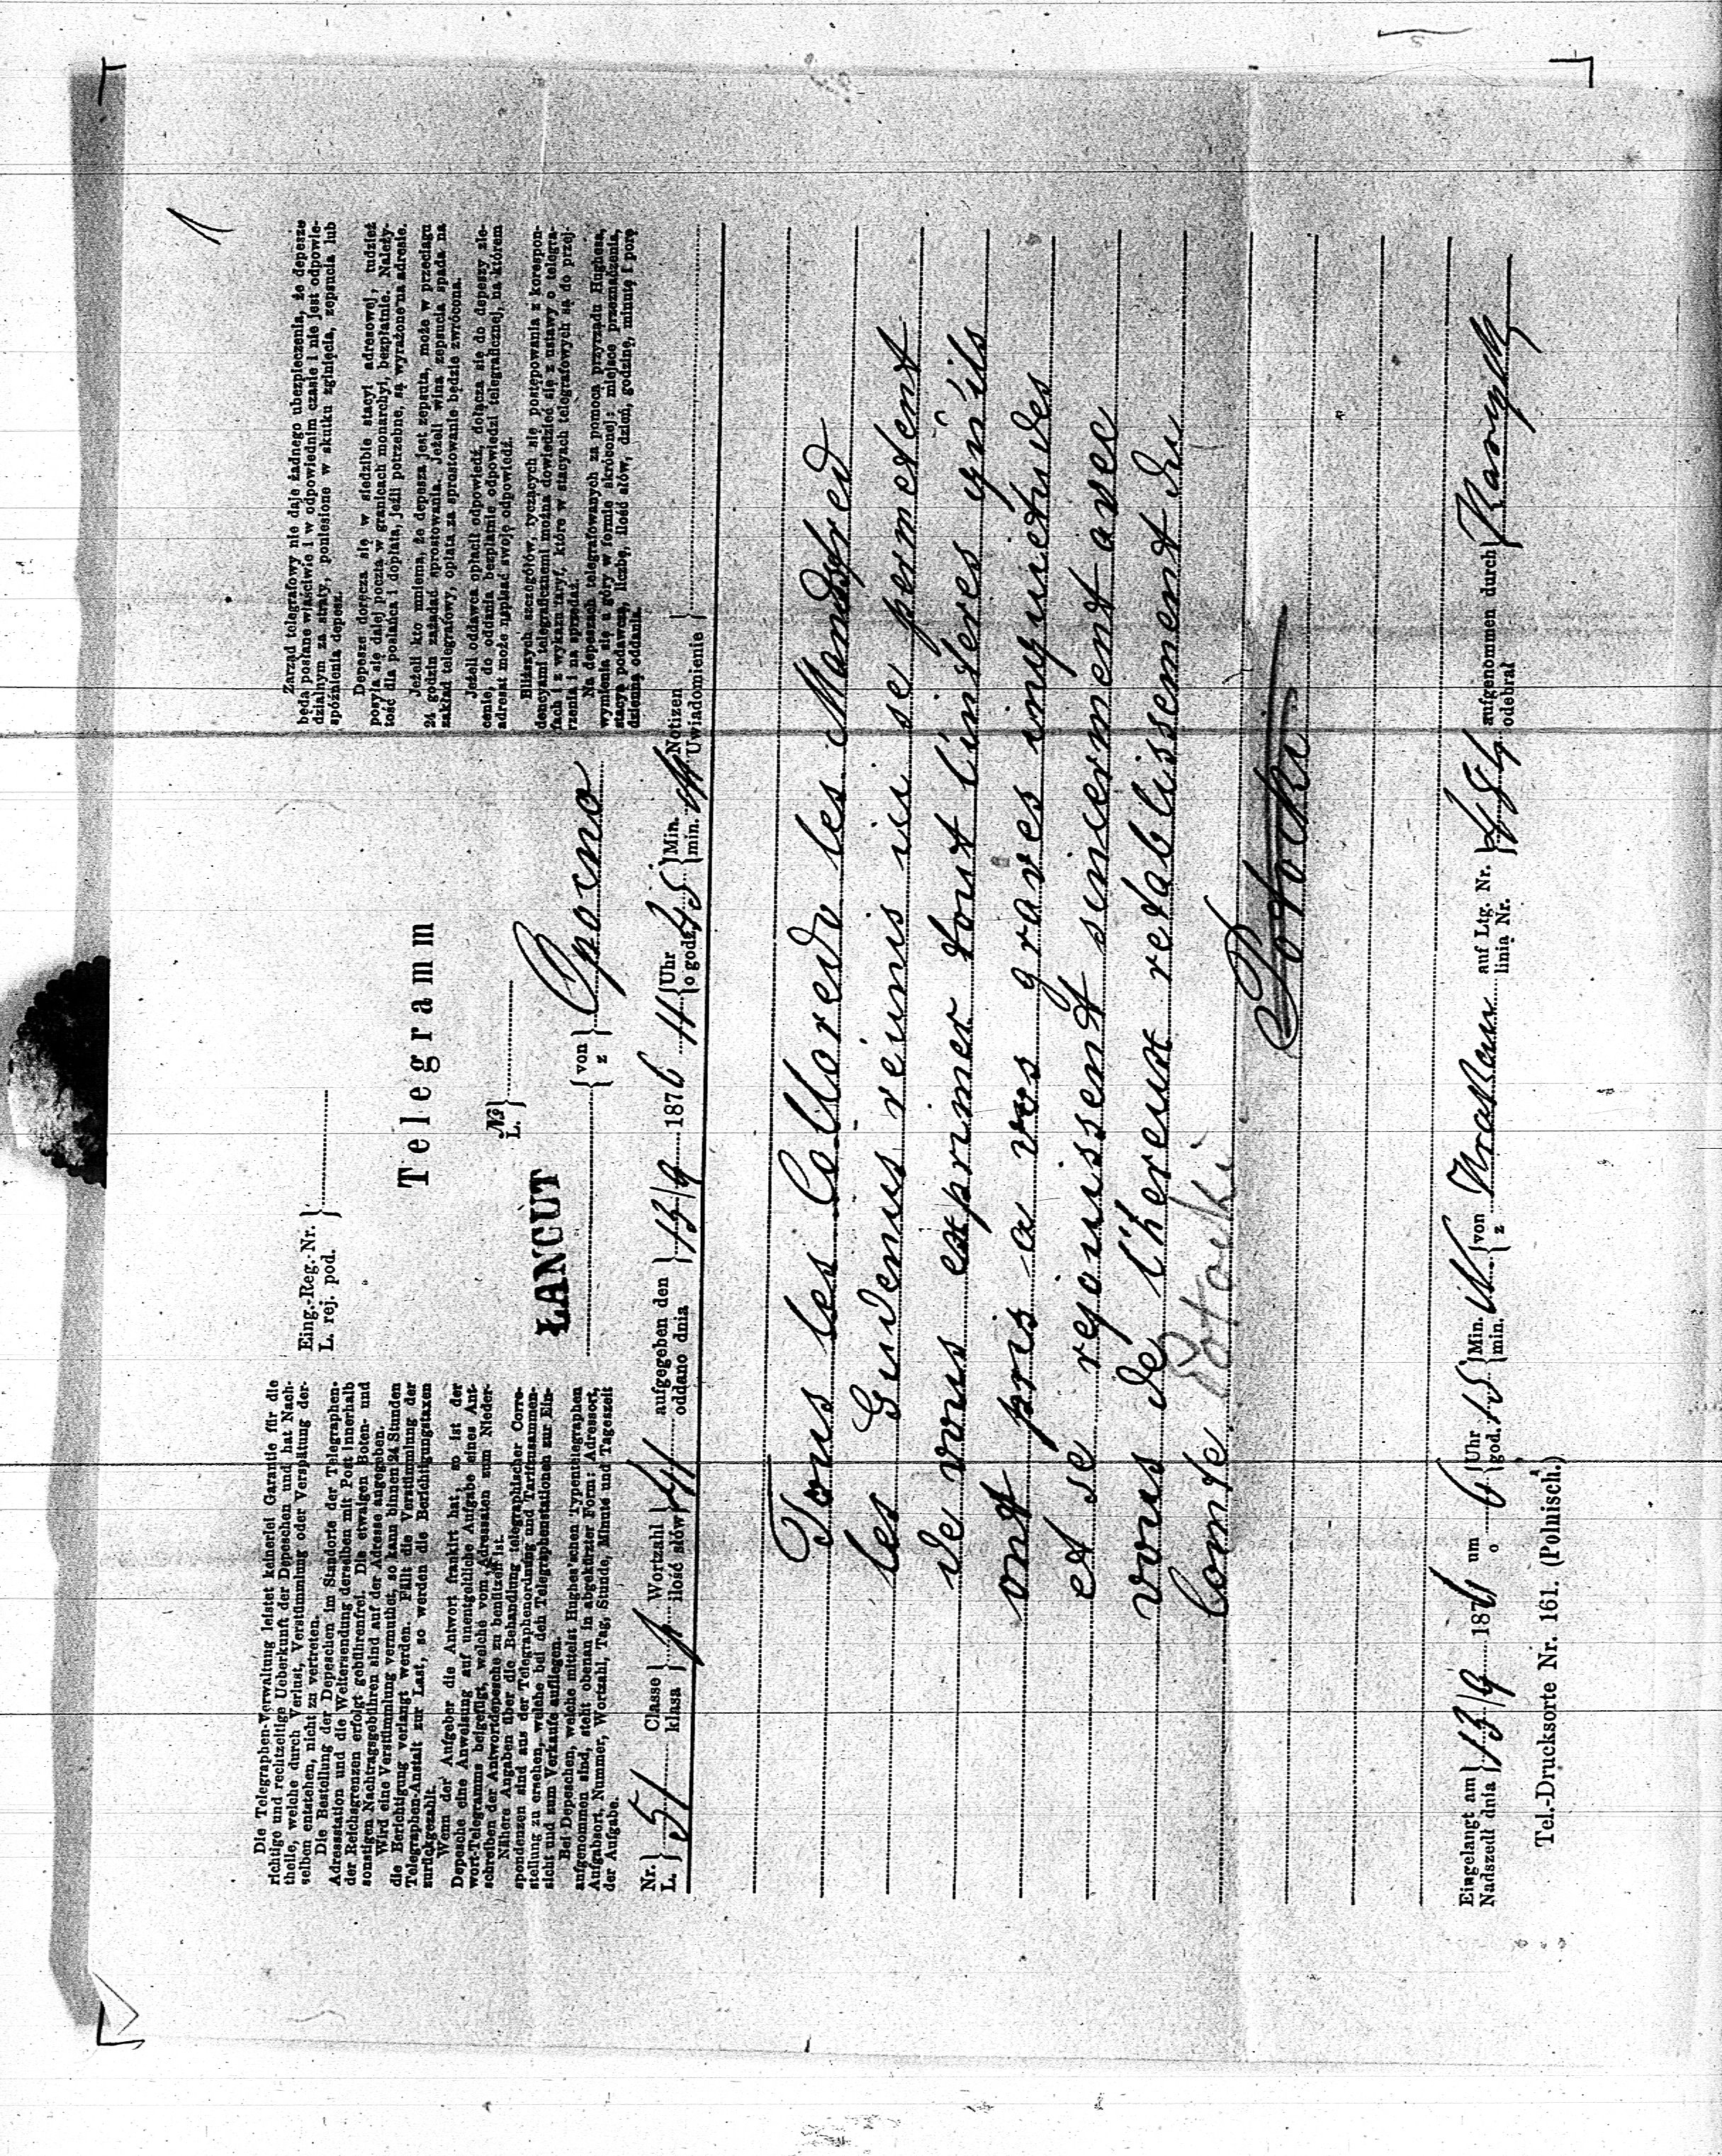 1
Die Telegraphen-Verwaltung leistet keinerlei Garantie für die
richtige und rechtzeitige Ueberkunft der Depeschen und hat Nach-
theile, welche durch Verlust, Verstümmlung oder Verspätung der-
selben entstehen, nicht zu vertreten.
Die Bestellung der Depeschen im Standorte der Telegraphen-
Adressstation und die Weitersendung derselben mit Post innerhalb
der Reichsgrenzen erfolgt gebührenfrei. Die etwaigen Boten- und
sonstigen Nachtragsgebühren sind auf der Adresse angegeben.
Wird eine Verstümmlung vermuthet, so kann binnen 24 Stunden
die Berichtigung verlangt werden. Fällt die Verstümmlung der
Telegraphen-Anstalt zur Last, so werden die Berichtigungstaxen
zurückgezahlt.
Wenn der Aufgeber die Antwort frankirt hat, so ist der
Depesche eine Anweisung auf unentgeltliche Aufgabe eines Ant-
wort-Telegramms beigefügt, welche vom Adressaten zum Nieder-
schreiben der Antwortdepesche zu benützen ist.
Nähere Angaben über die Behandlung telegraphischer Corre-
spondenzen sind aus der Telegraphenordnung und Tarifzusammen-
stellung zu ersehen, welche bei den Telegraphenstationen zur Ein-
sicht und zum Verkaufe aufliegen.
Bei Depeschen, welche mittelst Hughes'schen Typentelegraphen
aufgenommen sind, steht obenan in abgekürzter Form: Adressort,
Aufgabsort, Nummer, Wortzahl, Tag, Stunde, Minute und Tageszeit
der Aufgabe.
Eing.-Reg.-Nr.
L. rej. pod.
Telegramm
№
L.
ŁANCUT
von
z
Opocno
Zarząd telegrafowy nie daje żadnego ubezpieczenia, że depesze
będą posłane właściwie i w odpowiednim czasie i nie jest odpowie-
dzialnym za straty, poniesione w skutku zginięcia, zepsucia lub
spóźnienia depesz.
Depesze doręcza się w siedzibie stacyi adresowej, tudzież
posyła się dalej pocztą w granicach monarchyi, bezpłatnie. Należy-
tość dla posłańca i dopłata, jeźli potrzebne, są wyrażone na adresie.
Jeżeli kto mniema, że depesza jest zepsuta, może w przeciągu
24 godzin zażądać sprostowania. Jeżeli wina zepsucia spada na
zakład telegrafowy, opłata za sprostowanie będzie zwrócona.
Jeżeli oddawca opłacił odpowiedź, dołącza się do depeszy zle-
cenie, do oddania bezpłatnie odpowiedzi telegraficznej, na którem
adresat może napisać swoję odpowiedź.
Bliższych szczegółów, tyczących się postępowania z korespon-
dencyami telegraficznemi można dowiedzieć się z ustawy o telegra-
fach i z wykazu taryf, które w stacyach telegrafowych są do przej-
rzenia i na sprzedaż.
Na depeszach telegrafowanych za pomocą przyrządu Hughesa,
wymienia się u góry w formie skróconej: miejsce przeznaczenia,
stacyę podawczą, liczbę, ilość słów, dzień, godzinę, minutę i porę
dzienną oddania.
Nr. L. 51 Classe klasa Wortzahl ilość słów 41 aufgegeben den oddano dnia 13/9 1876 Uhr o godz. 45 Min. min. Notizen Uwiadomienie
Tous les Colloredo les Mandsfred
les Gudenus reunis ici se permetent
de vous exprimer tout linteres qu'ils
ont pris a vos graves inquietudes
et se rejouissent sincerment avec
vous de l'hereux retablissement du
Comte Potocki
Potocki
Eingelangt am Nadszedł dnia 13/9 1876 um o 6 Uhr god. 15 Min. min. von z Krakau auf Ltg. Nr. linia Nr. aufgenommen durch odebrał
Tel.-Drucksorte Nr. 161. (Polnisch.)